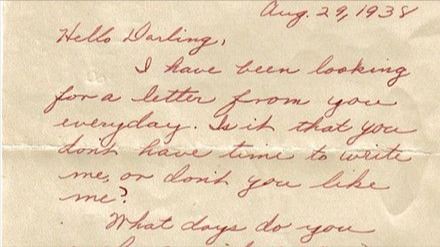 Aug. 29, 1938
Hello Darling,
I have been looking
for a letter from you
everyday. Is it that you
dont have time to write
me, or dont you like
me?
What days do you